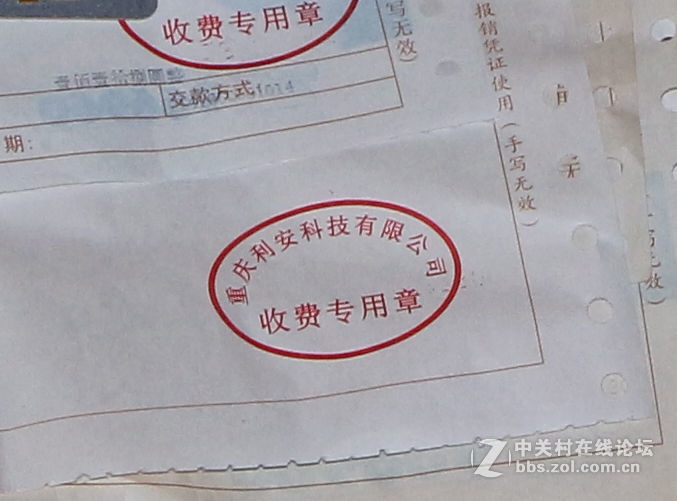 收费专用章
写无效)
报销凭证使用(手写无效)
壹佰壹拾捌圆整
交款方式
期:
重庆利安科技有限公司
收费专用章
写无效)
中关村在线论坛
bbs.zol.com.cn